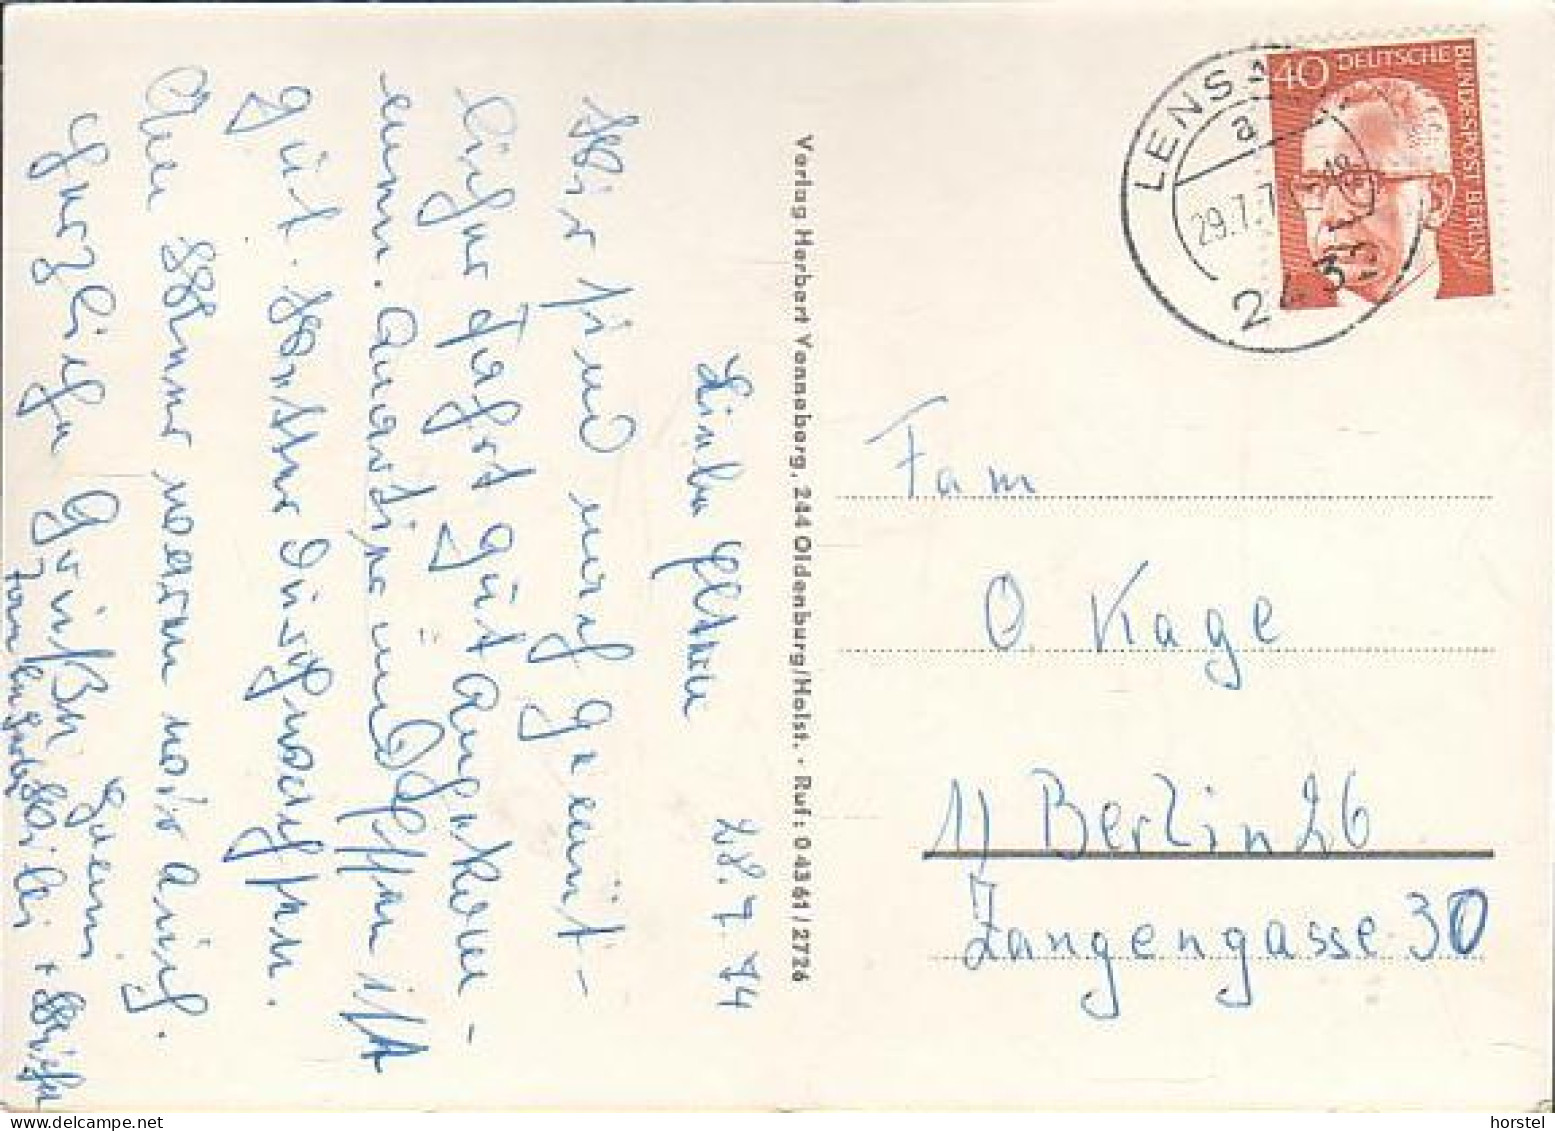 Liebe Eltern 28.7.74
Wir sind nach gemüt-
licher Fahrt gut angekom-
men. Quartier und Essen ist
gut. Wetter durchwachsen.
Aber Sonne waren wir auch.
Herzliche Grüße
Verlag Herbert Vonneberg, 244 Oldenburg/Holst. · Ruf: 04361/2726
LENSA
a
29.7.7
40 DEUTSCHE BUNDESPOST BERLIN
Fam
O. Kage
1) Berlin 26
Zangengasse 30
horstel